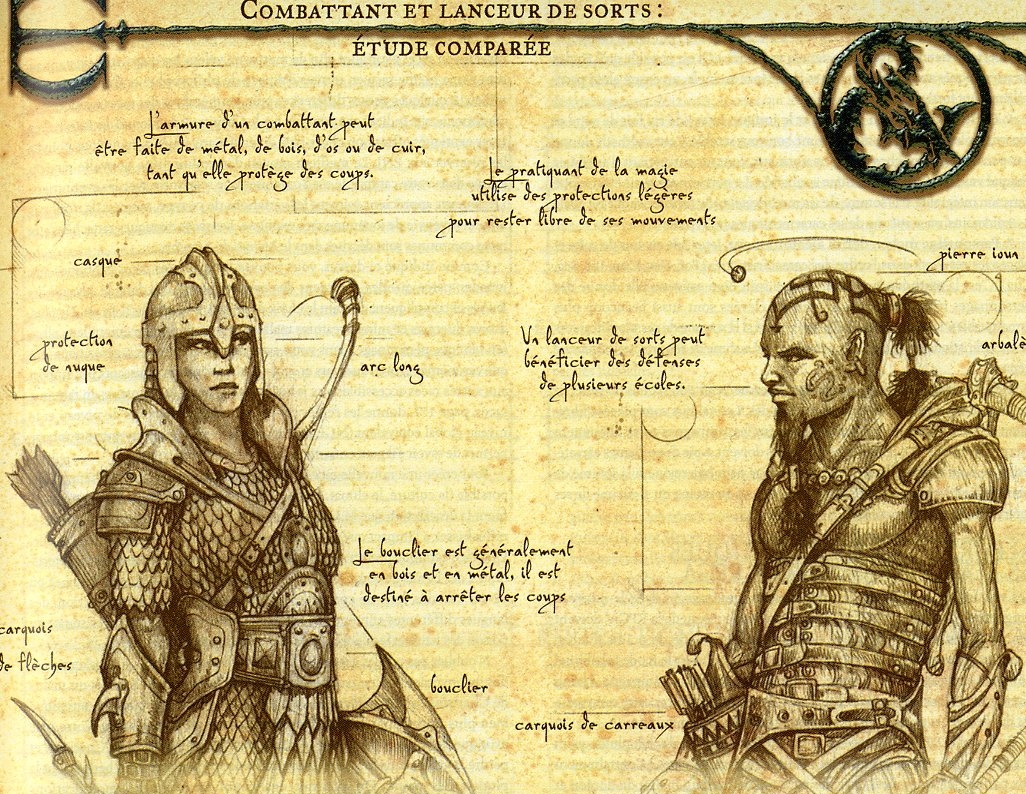 COMBATTANT ET LANCEUR DE SORTS :
ÉTUDE COMPARÉE
L'armure d'un combattant peut
être faite de métal, de bois, d'os ou de cuir,
tant qu'elle protège des coups.
Le pratiquant de la magie
utilise des protections légères
pour rester libre de ses mouvements
casque
pierre ioun
protection
de nuque
arc long
Un lanceur de sorts peut
bénéficier des défenses
de plusieurs écoles.
arbalè
Le bouclier est généralement
en bois et en métal, il est
destiné à arrêter les coups
carquois
de flèches
bouclier
carquois de carreaux